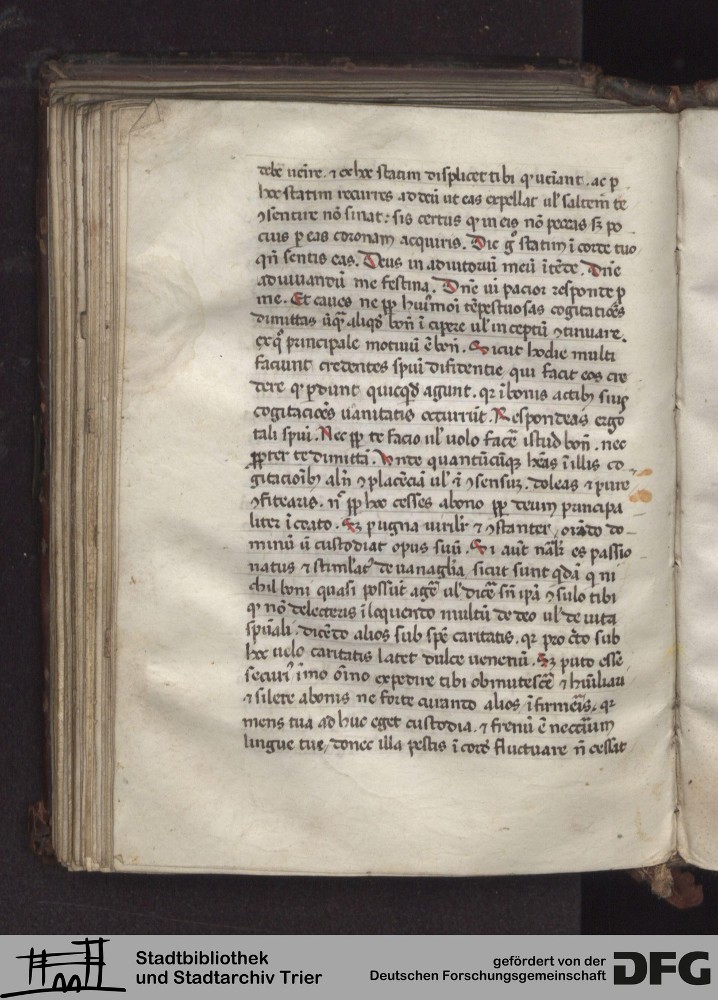 debe uenire. ⁊ ex hoc statim displicet tibi qꝛ ueniant. ac ꝑ
hoc statim recurres ad deū ut eas expellat ul' saltem te
ꝯsentire nō sinat: sis certus qꝛ in eis nō peccas sꝫ po
cius ꝑ eas coronam acquiris. Dic gͦ statim ī corde tuo
qn̄ sentis eas. Deus in adiutoriū meū ītēde. Dn̄e
ad iuuandū me festina. Dn̄e uī pacior responde ꝑ
me. Et caues ne ꝓp huiꝰmoi tēpestuosas cogitacōes
dimittas ūqͣ aliqd bon̄ īcipere ul' inceptū ꝯtinuare.
ex qͦ principale motiuū ē bon̄. Sicut hodie multi
faciunt credentes spūi difidentie qui facit eos cre
dere qꝛ ꝑdunt quicqd agunt. qꝛ ī bonis actibꝫ suis
cogitacōes uanitatis occurrūt. Respondeas ergo
tali spūi. Nec ꝓp te facio ul' uolo facē istud bon̄. nec
ꝓpter te dimittā. Vnde quantūcūqꝫ hēas ī illis co
gitacionibꝫ aln̄ ꝯplacēciā ul' ⁊ ꝯsensū. doleas ⁊ pure
ꝯfitearis. n̄ ꝓp hoc cesses a bono ꝓp deum principa
liter īcoato. Sꝫ pugna uirilr̄ ⁊ ꝯstanter, orādo do
minū ū custodiat opus suū. Si aūt nālr̄ es passio
natus ⁊ stimlatꝰ de uanaglīa, sicut sunt qdā q ni
chil boni quasi possūt agē ul' dicē sn̄ ipā ꝯsulo tibi
qꝛ nō delecteris ī loquendo multū de deo ul' de uita
spūali. dicēdo alios sub spē caritatis. qꝛ pro cͦto sub
hoc uelo caritatis latet dulce uenenū. Sꝫ puto esse
securiꝰ īmo oīno expedire tibi obmutescē ⁊ hūiliari
⁊ silere a bonis ne forte curando alios īfirmēis. qꝛ
mens tua adhuc eget custodia. ⁊ frenū ē neccāium
lingue tue, donec illa pestis ī corde fluctuare n̄ cessat
Stadtbibliothek
und Stadtarchiv Trier
gefördert von der
Deutschen Forschungsgemeinschaft
DFG